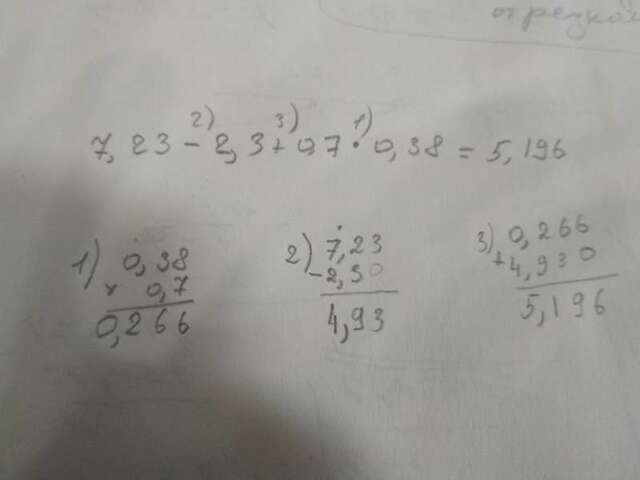 отрезков
2) 3) 1)
7,23 - 2,3 + 0,7 · 0,38 = 5,196
1) 0,38 2) 7,23 3) 0,266
× 0,7 - 2,30 + 4,930
0,266 4,93 5,196